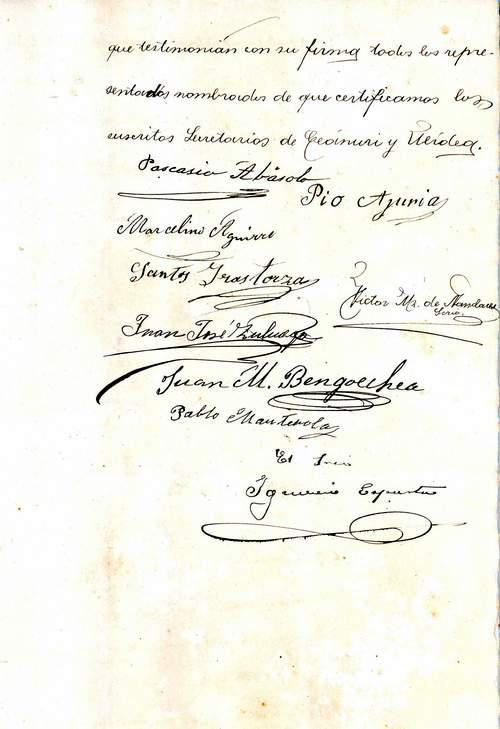 que testimonian con su firma todos los repre-
sentados nombrados de que certificamos los
suscritos Secretarios de Ceánuri y Ubidea.
Pascasio Abásolo
Pio Ajuria
Marcelino Aguirre
Santos Irastorza
Victor Mz. de Mandaluz
Srio.
Juan José Zuluaga
Juan M. Bengoechea
Pablo Manterola
El Srio
Ignacio